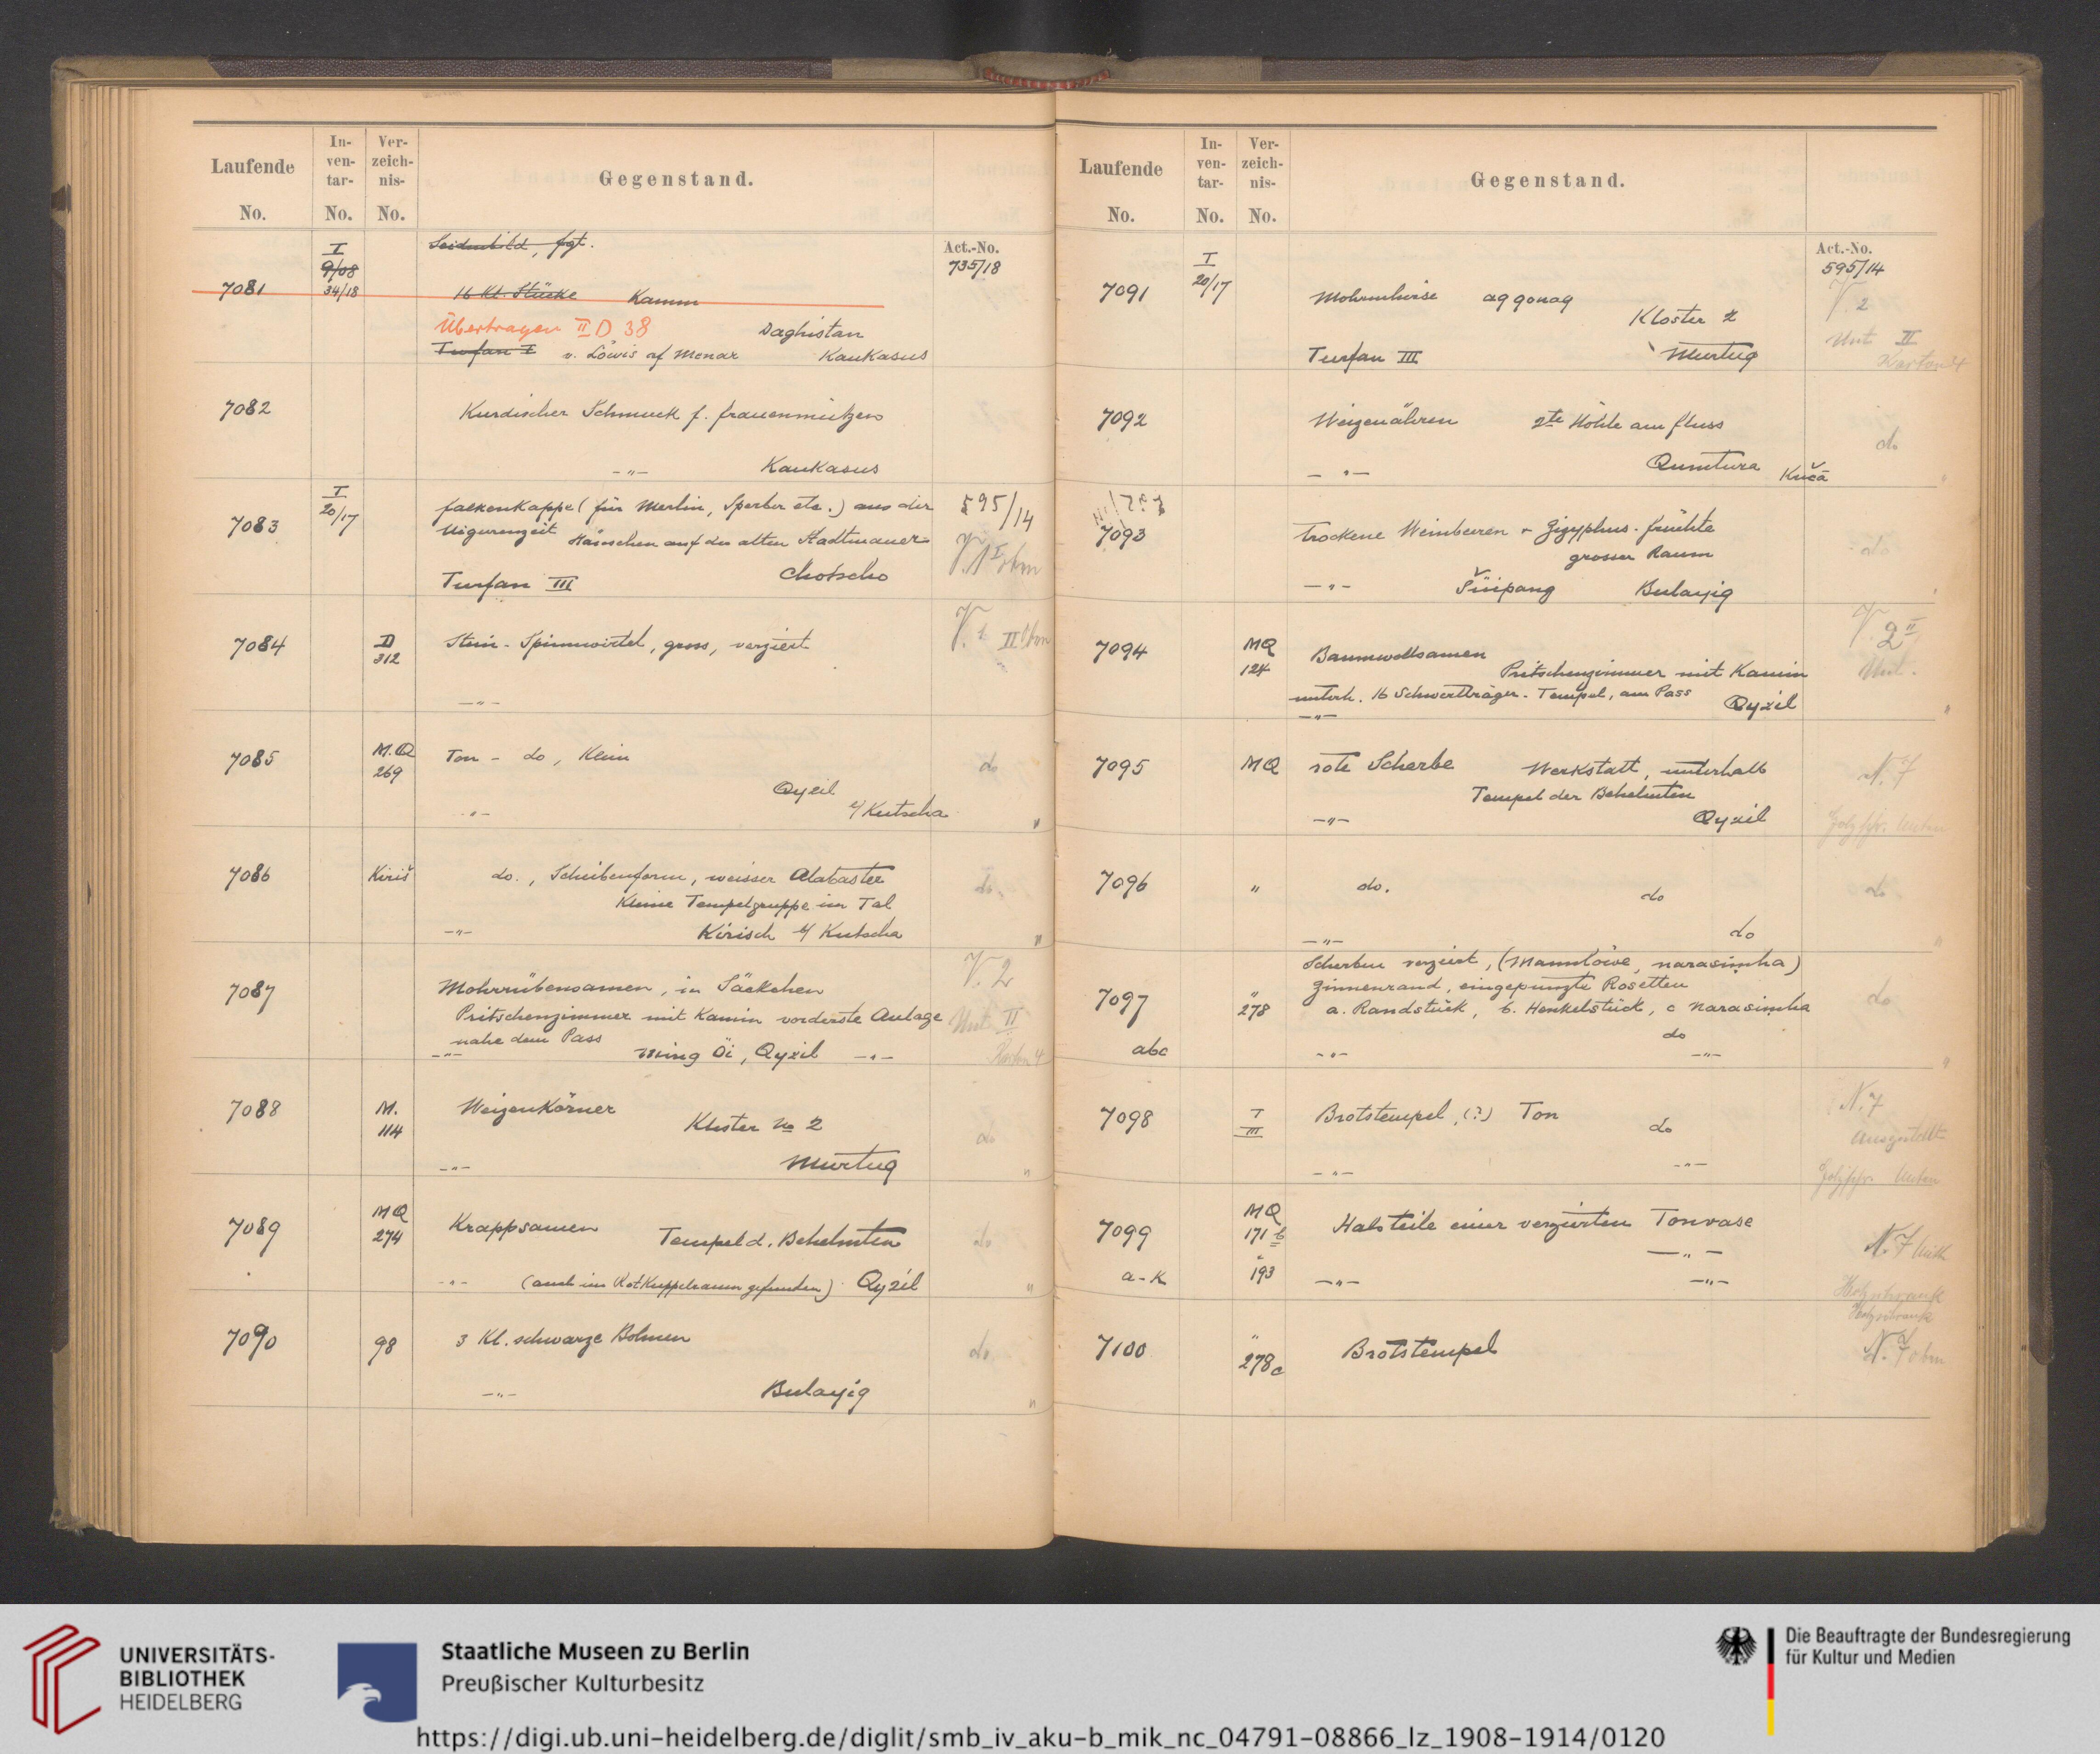 Laufende No.
In-ven-tar- No.
Ver-zeich-nis- No.
Gegenstand.
Seidenbild, frgt.
Act.-No.
735/18
7081
I
9/08
34/18
16 kl. Stücke Kamm
Übertragen II D 38
Daghistan
Turfan I v. Löwis of Menar Kaukasus
7082
Kurdischer Schmuck f. Frauenmützen
-"- Kaukasus
7083
I
20/17
Falkenkappe (für Merlin, Sperber etc.) aus der
Uigurenzeit Häuschen auf der alten Stadtmauer
Turfan III Chotscho
595/14
V. 1 I obm
7084
D
312
Stein-Spinnwirtel, gross, verziert
-"-
V. 1 II
7085
M.Q
269
Ton - do, klein
Qyzil
-"- b/Kutscha
do
"
7086
Kiriš
do., Scheibenform, weisser Alabaster
Kleine Tempelgruppe im Tal
-"- Kirisch b/ Kutscha
do.
"
7087
Mohrrübensamen, in Säckchen
Pritschenzimmer mit Kamin vorderste Anlage
nahe dem Pass
-"- Ming Öi, Qyzil -"-
V. 2
Unt II
Karton 4
7088
M.
114
Weizenkörner
Kloster No 2
-"- Murtuq
do
"
7089
MQ
274
Krappsamen
Tempel d. Behelmten
-"- (auch im Rotkuppelraum gefunden) Qyzil
do
"
7090
98
3 kl. schwarze Bohnen
-"- Bulayiq
do
"
Laufende No.
In-ven-tar- No.
Ver-zeich-nis- No.
Gegenstand.
Act.-No.
595/14
7091
I
20/17
Mohrenhirse aq qonaq
Kloster 2
Turfan III Murtuq
V. 2
Unt II
Karton 4
7092
Weizenähren 2te Höhle am Fluss
-"- Qumtura Kučā
do
"
7093
Trockene Weinbeeren + Zizyphus-früchte
grosser Raum
-"- Šüipang Bulayiq
do
"
7094
MQ
124
Baumwollsamen
Pritschenzimmer mit Kamin
unterh. 16 Schwertträger-Tempel, am Pass Qyzil
-"-
V. 2 II
Unt.
"
7095
MQ
rote Scherbe Werkstatt, unterhalb
Tempel der Behelmten
-"- Qyzil
N. 7
Holzschr. Unten
7096
"
do. do
-"- do
do.
"
7097
abc
"
278
Scherben verziert, (Mannlöwe, narasiṃha)
Zinnenrand, eingepunzte Rosetten
a. Randstück, b. Henkelstück, c Narasiṃha
do
-"- -"-
do
"
7098
I
III
Brotstempel, (?) Ton
do
-"- -"-
N. 7
Ausgestellt
Holzschr. Unten
7099
a-k
MQ
171 b
"
193
Halsteile einer verzierten Tonvase
-"-
-"- -"-
N. 7
Holzschrank
7100
"
278c
Brotstempel
Holzschrank
N. 7 obm
UNIVERSITÄTS-
BIBLIOTHEK
HEIDELBERG
Staatliche Museen zu Berlin
Preußischer Kulturbesitz
Die Beauftragte der Bundesregierung
für Kultur und Medien
https://digi.ub.uni-heidelberg.de/diglit/smb_iv_aku-b_mik_nc_04791-08866_lz_1908-1914/0120